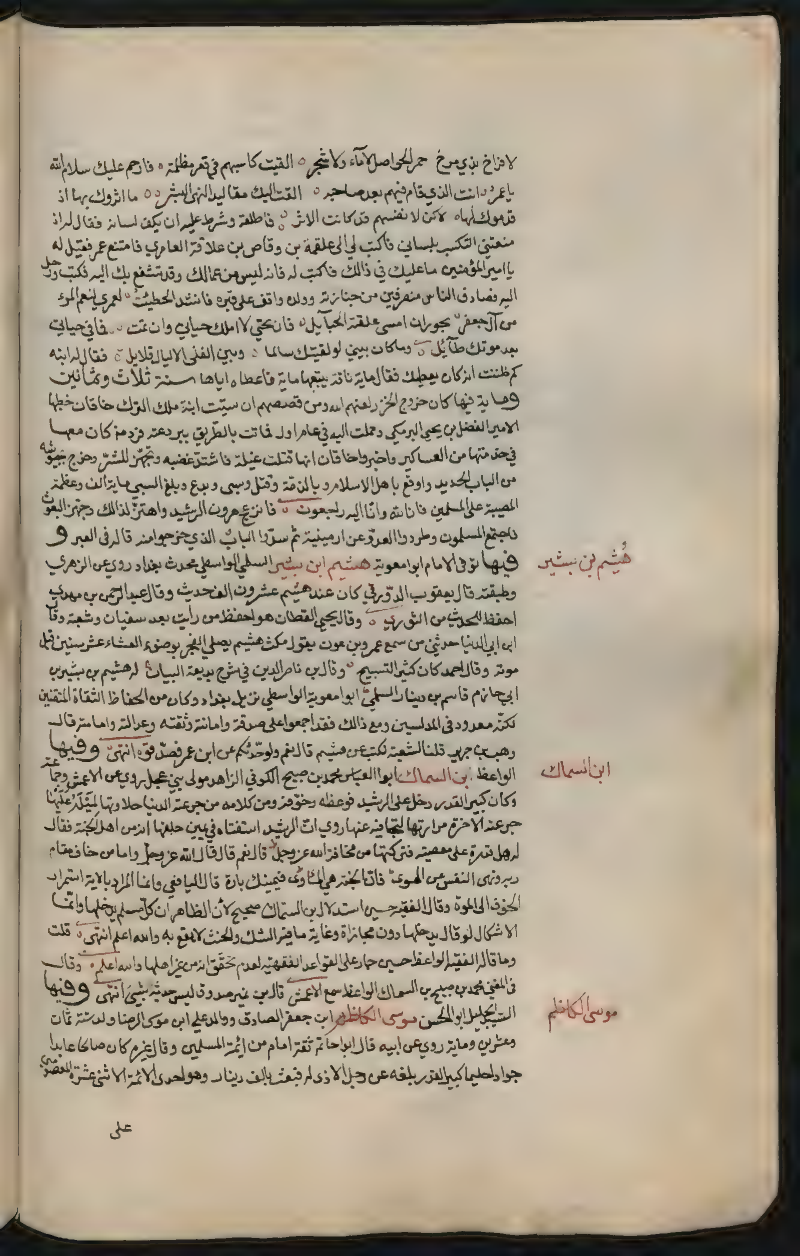 لافراخ بذي مرخ حمر الحواصل لا ماء ولا شجر ه القيت كاسبهم في قعر مظلمة ه فارحم عليك سلام الله
يا عمر ه انت الذي قام فيهم بعد صاحبه ه القت اليك مقاليد النهى البشر ه ه ما اثروك بها اذ
قدموك لها ه لاكن لانفسهم قد كانت الاثر ه فاطلقه وشرط عليه ان يكف لسانه فقال له اذ
منعتني التكسب بلساني فاكتب لي الى علقمة بن وقاص بن علاقة العامري فامتنع عمر فقيل له
يا امير المؤمنين ما عليك في ذالك فاكتب له فانه ليس من عمالك وقد تشفع بك اليه فكتب ورحل
اليه فصادف الناس منصرفين من جنازته وولده واقف على قبره فانشد الحطيئة ه لعمري لنعم المرء
من آل جعفر ه بحوران امسى علقته الحبايل ه فان تحيى لا املك حياتي وان تمت ه فما في حياتي
بعد موتك طآئل ه وما كان بيني لو لقيتك سالما ه وبين الغنى الا ليال قلايل ه فقال له ابنه
كم ظننت انه كان يعطيك فقال ماية ناقة يتبعها ماية فاعطاه اياها سنة ثلاث وثمانين
وماية فيها كان خروج الخزر لعنهم الله ومن قصصهم ان سيّت ابنة ملك الترك خاقان خطبها
الامير الفضل بن يحيى البرمكي وحملت اليه في عام اول فماتت بالطريق ببردعة فرد من كان معها
في خدمتها من العساكر واخبروا خاقان انها قتلت غيلة فاشتد غضبه وتجهز للشر وخرج بجيوشه
من الباب الحديد واوقع باهل الاسلام وبالذمة وقتل وسبى وبدع وبلغ السبي ماية الف وعظمة
المصيبة على المسلمين فانا لله وانا اليه راجعون ه فانزعج هرون الرشيد واهتز لذالك وجهز البعوث
فاجتمع المسلمون وطردوا العدو عن ارمينية ثم سدوا الباب الذي خرجوا منه قاله في العبر و
فيها توفى الامام ابو معوية هشيم ابن بشير السلمي الواسطي محدث بغداد روى عن الزهري
وطبقته قال يعقوب الدورقي كان عند هشيم عشرون الف حديث وقال عبد الرحمن بن مهدي
احفظ للحديث من الثوري ه وقال يحيى القطان هو احفظ من رايت بعد سفيان وشعبة وقال
ابن ابي الدنيا حدثني من سمع عمرو بن عون يقول مكث هشيم يصلي الفجر بوضوء العشاء عشر سنين قبل
موته وقال احمد كان كثير التسبيح ه وقال بن ناصر الدين في شرح بديعة البيان له هشيم بن بشير بن
ابي حازم قاسم بن دينار السلمي ابو معوية الواسطي نزيل بغداد وكان من الحفاظ الثقاة المتقنين
لكنه معدود في المدلسين ومع ذالك فقد اجمعوا على صدقه وامانته وثقته وعدالته وامامته قال
وهب بن جرير قلنا لشعبة نكتب عن هشيم قال نعم ولو حدثكم عن ابن عمر فصدقوه انتهى وفيها
الواعظ بن السماك ابو العباس محمد بن صبيح الكوفي الزاهد مولى بني عجل روى عن الاعمش وجماعة
وكان كبير القدر دخل على الرشيد فوعظه وخوفه ومن كلامه من جرعته الدنيا حلاوتها لميله عليها
جرعته الاخرة مرارتها لتجافيه عنها روي ان الرشيد استفتاه في يمين حلفها انه من اهل الجنة فقال
له هل قدرة على معصية فتركتها من مخافة الله عز وجل قال نعم قال قال الله عز وجل واما من خاف مقام
ربه ونهى النفس عن الهوى فان الجنة هي المأوى فيمينك بارة قال اليافعي وانما المراد بالاية استمرار
الخوف الى الموة وقال الفقيه حسين استدلال بن السماك صحيح لان الظاهر ان كل مسلم يدخلها وانما
الاشكال لو قال يدخلها دون مجازاة وغاية ما فيه الشك والحنث لا يقع به والله اعلم انتهى ه قلت
وما قاله الفقيه الواعظ حسين جار على القواعد الفقهية لعدم تحقق انه من غير اهلها والله اعلم ه وقال
في المغني محمد بن صبيح بن السماك الواعظ سمع الاعمش قال بن نمير صدوق ليس حديثه بشيئ انتهى وفيها
السيد الجليل ابو الحسن موسى الكاظم ابن جعفر الصادق ووالد علي ابن موسى الرضا ولد سنة ثمان
وعشرين وماية روى عن ابيه قال ابو حاتم ثقة امام من ائمة المسلمين وقال غيره كان صالحا عابدا
جوادا حليما كبير القدر بلغه عن رجل الاذى له فبعث بالف دينار وهو احدى الائمة الاثنى عشرة المعصومين
على
هُشيم بن بشير
ابن السماك
موسى الكاظم